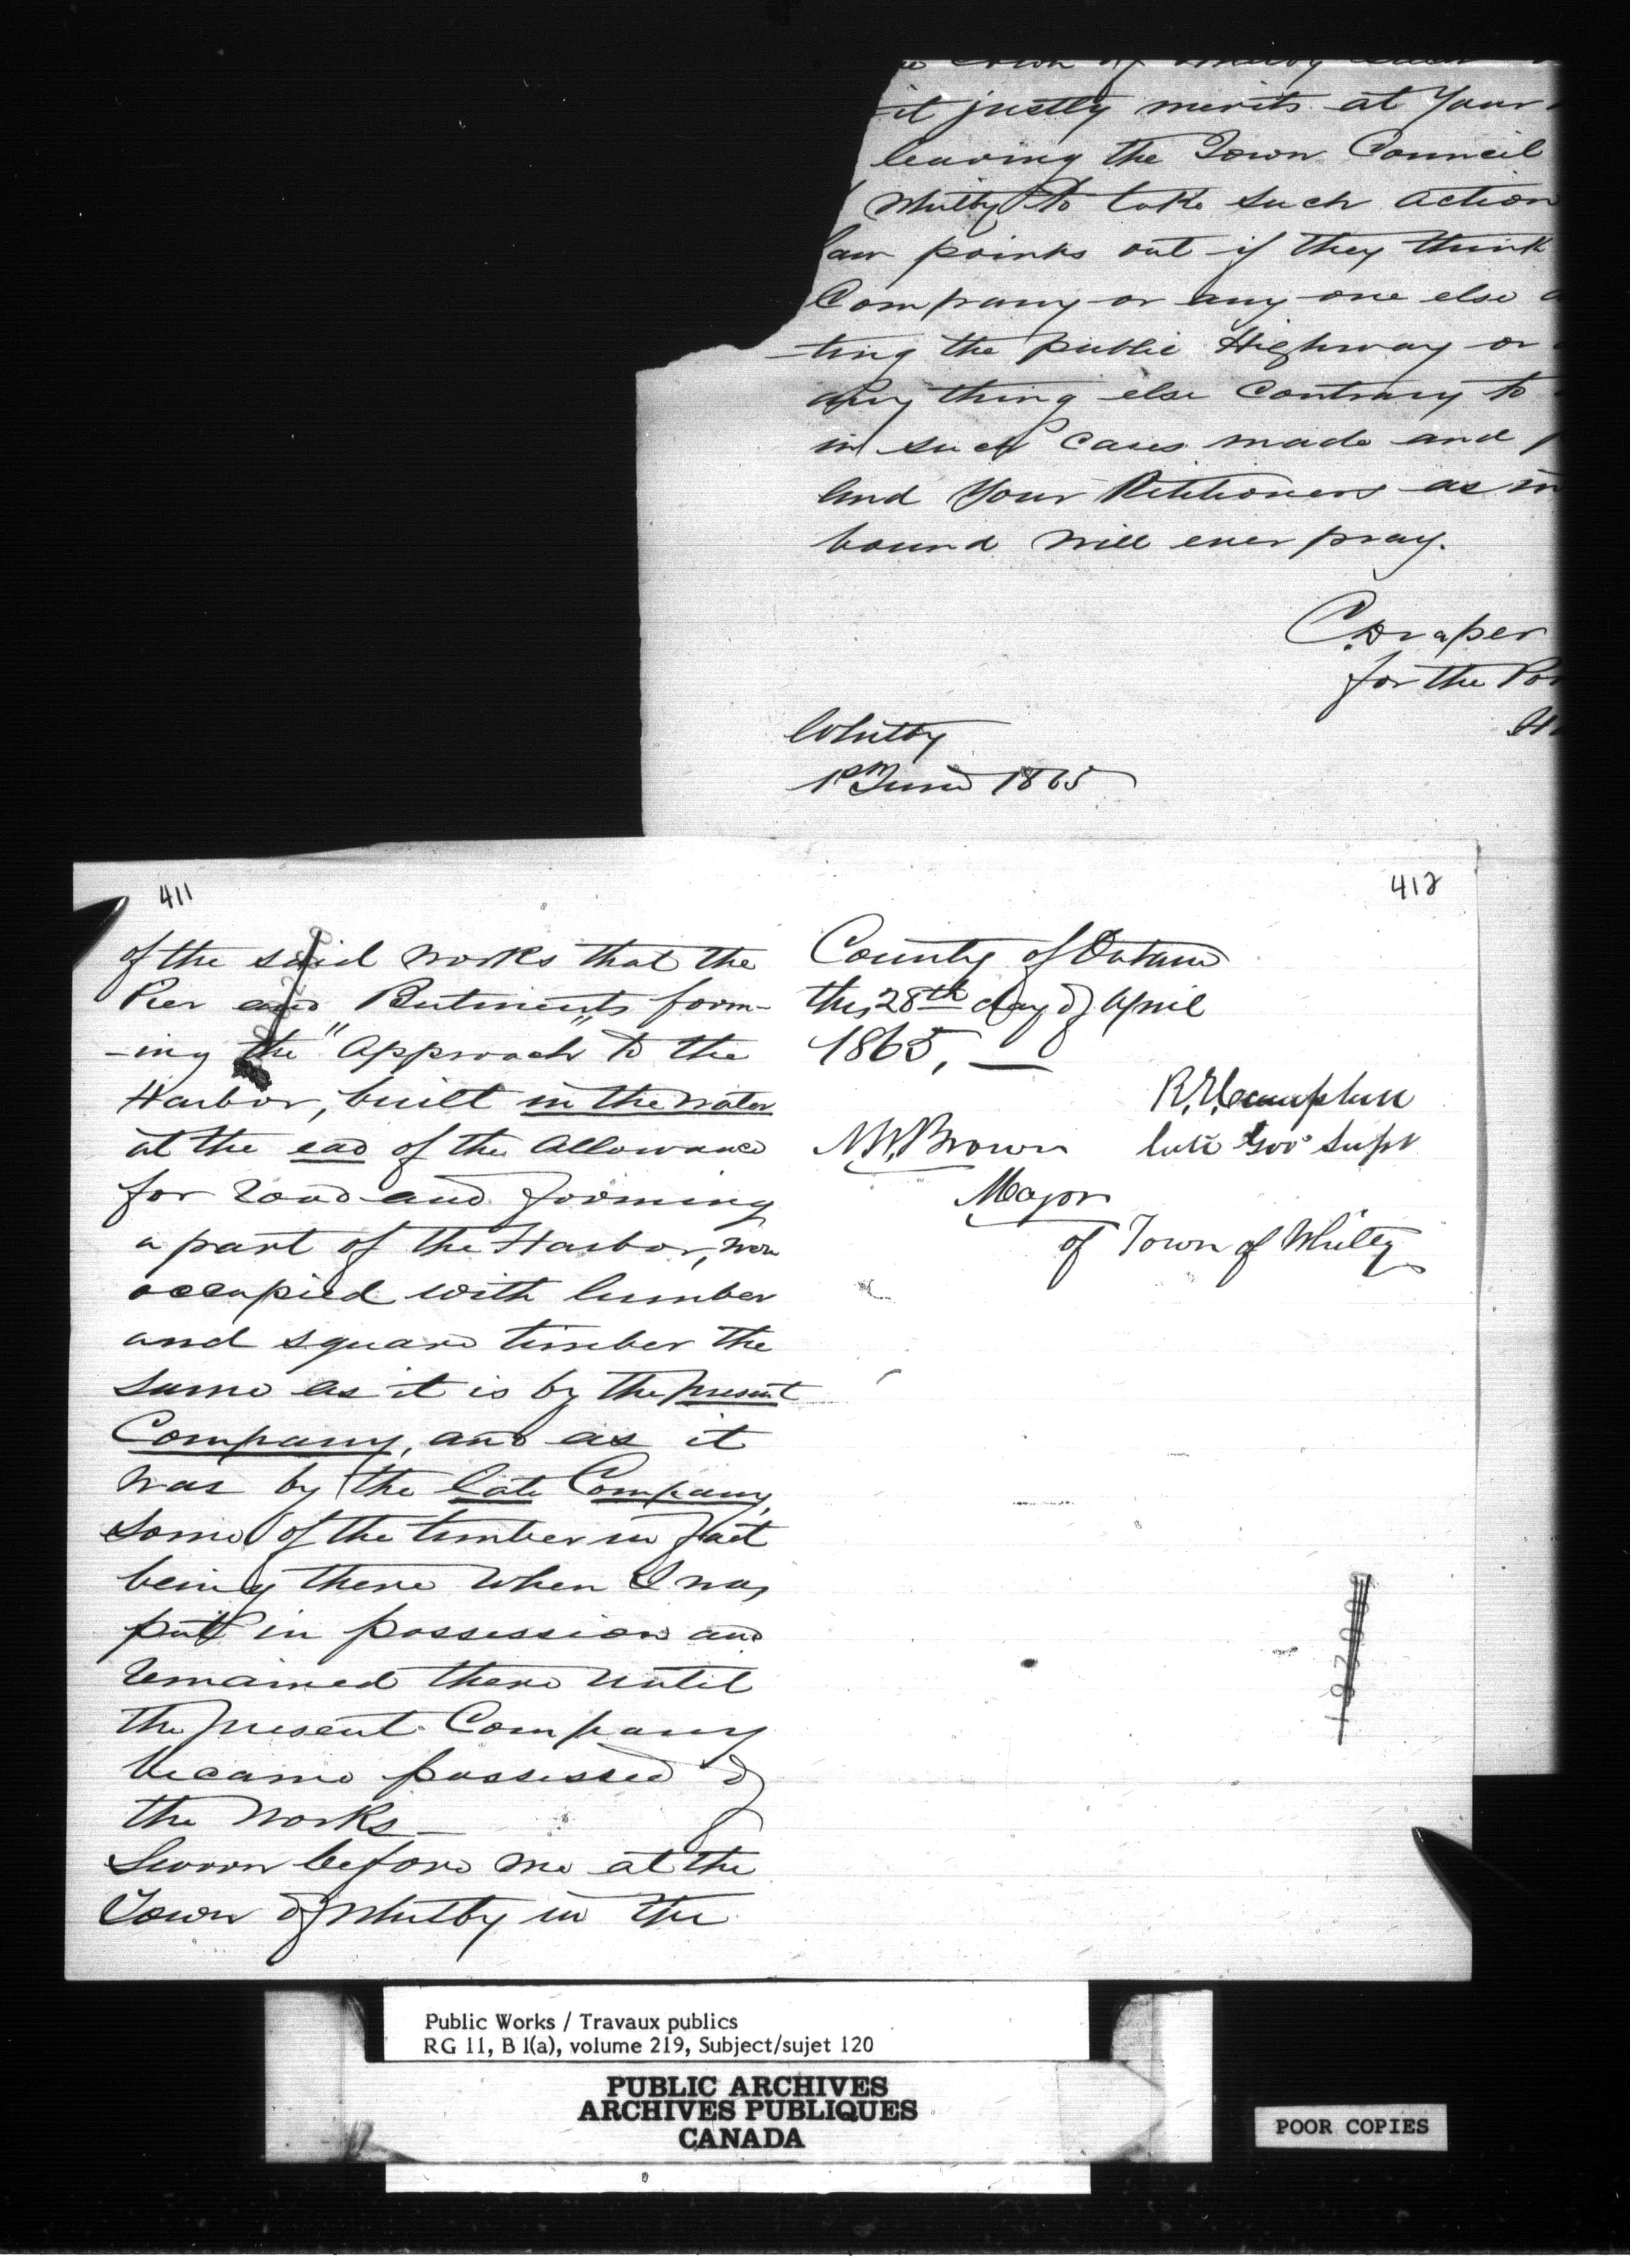 it justly merits at Your
leaving the Town Council
Whitby to take such action
law points out if they think
Company or any one else
-ting the public Highway or
any thing else Contrary to
in such cases made and
And Your Petitioners as in
bound will ever pray.
C. Draper
for the
Whitby
1st June 1865
411
412
of the said works that the
Pier and Butments form-
-ing the "Approach" to the
Harbor, built in the water
at the end of the Allowance
for road and forming
a part of the Harbor, was
occupied with lumber
and square timber the
same as it is by the present
Company, and as it
was by the late Company,
some of the timber in fact
being there when I was
put in possession and
remained there until
the present Company
became possessed of
the works—
Sworn before me at the
Town of Whitby in the
County of Ontario
this 28th day of April
1865, —
R.E. Campbell
late Gov Supt
N.W. Brown
Mayor
of Town of Whitby
Public Works / Travaux publics
RG 11, B 1(a), volume 219, Subject/sujet 120
PUBLIC ARCHIVES
ARCHIVES PUBLIQUES
CANADA
POOR COPIES